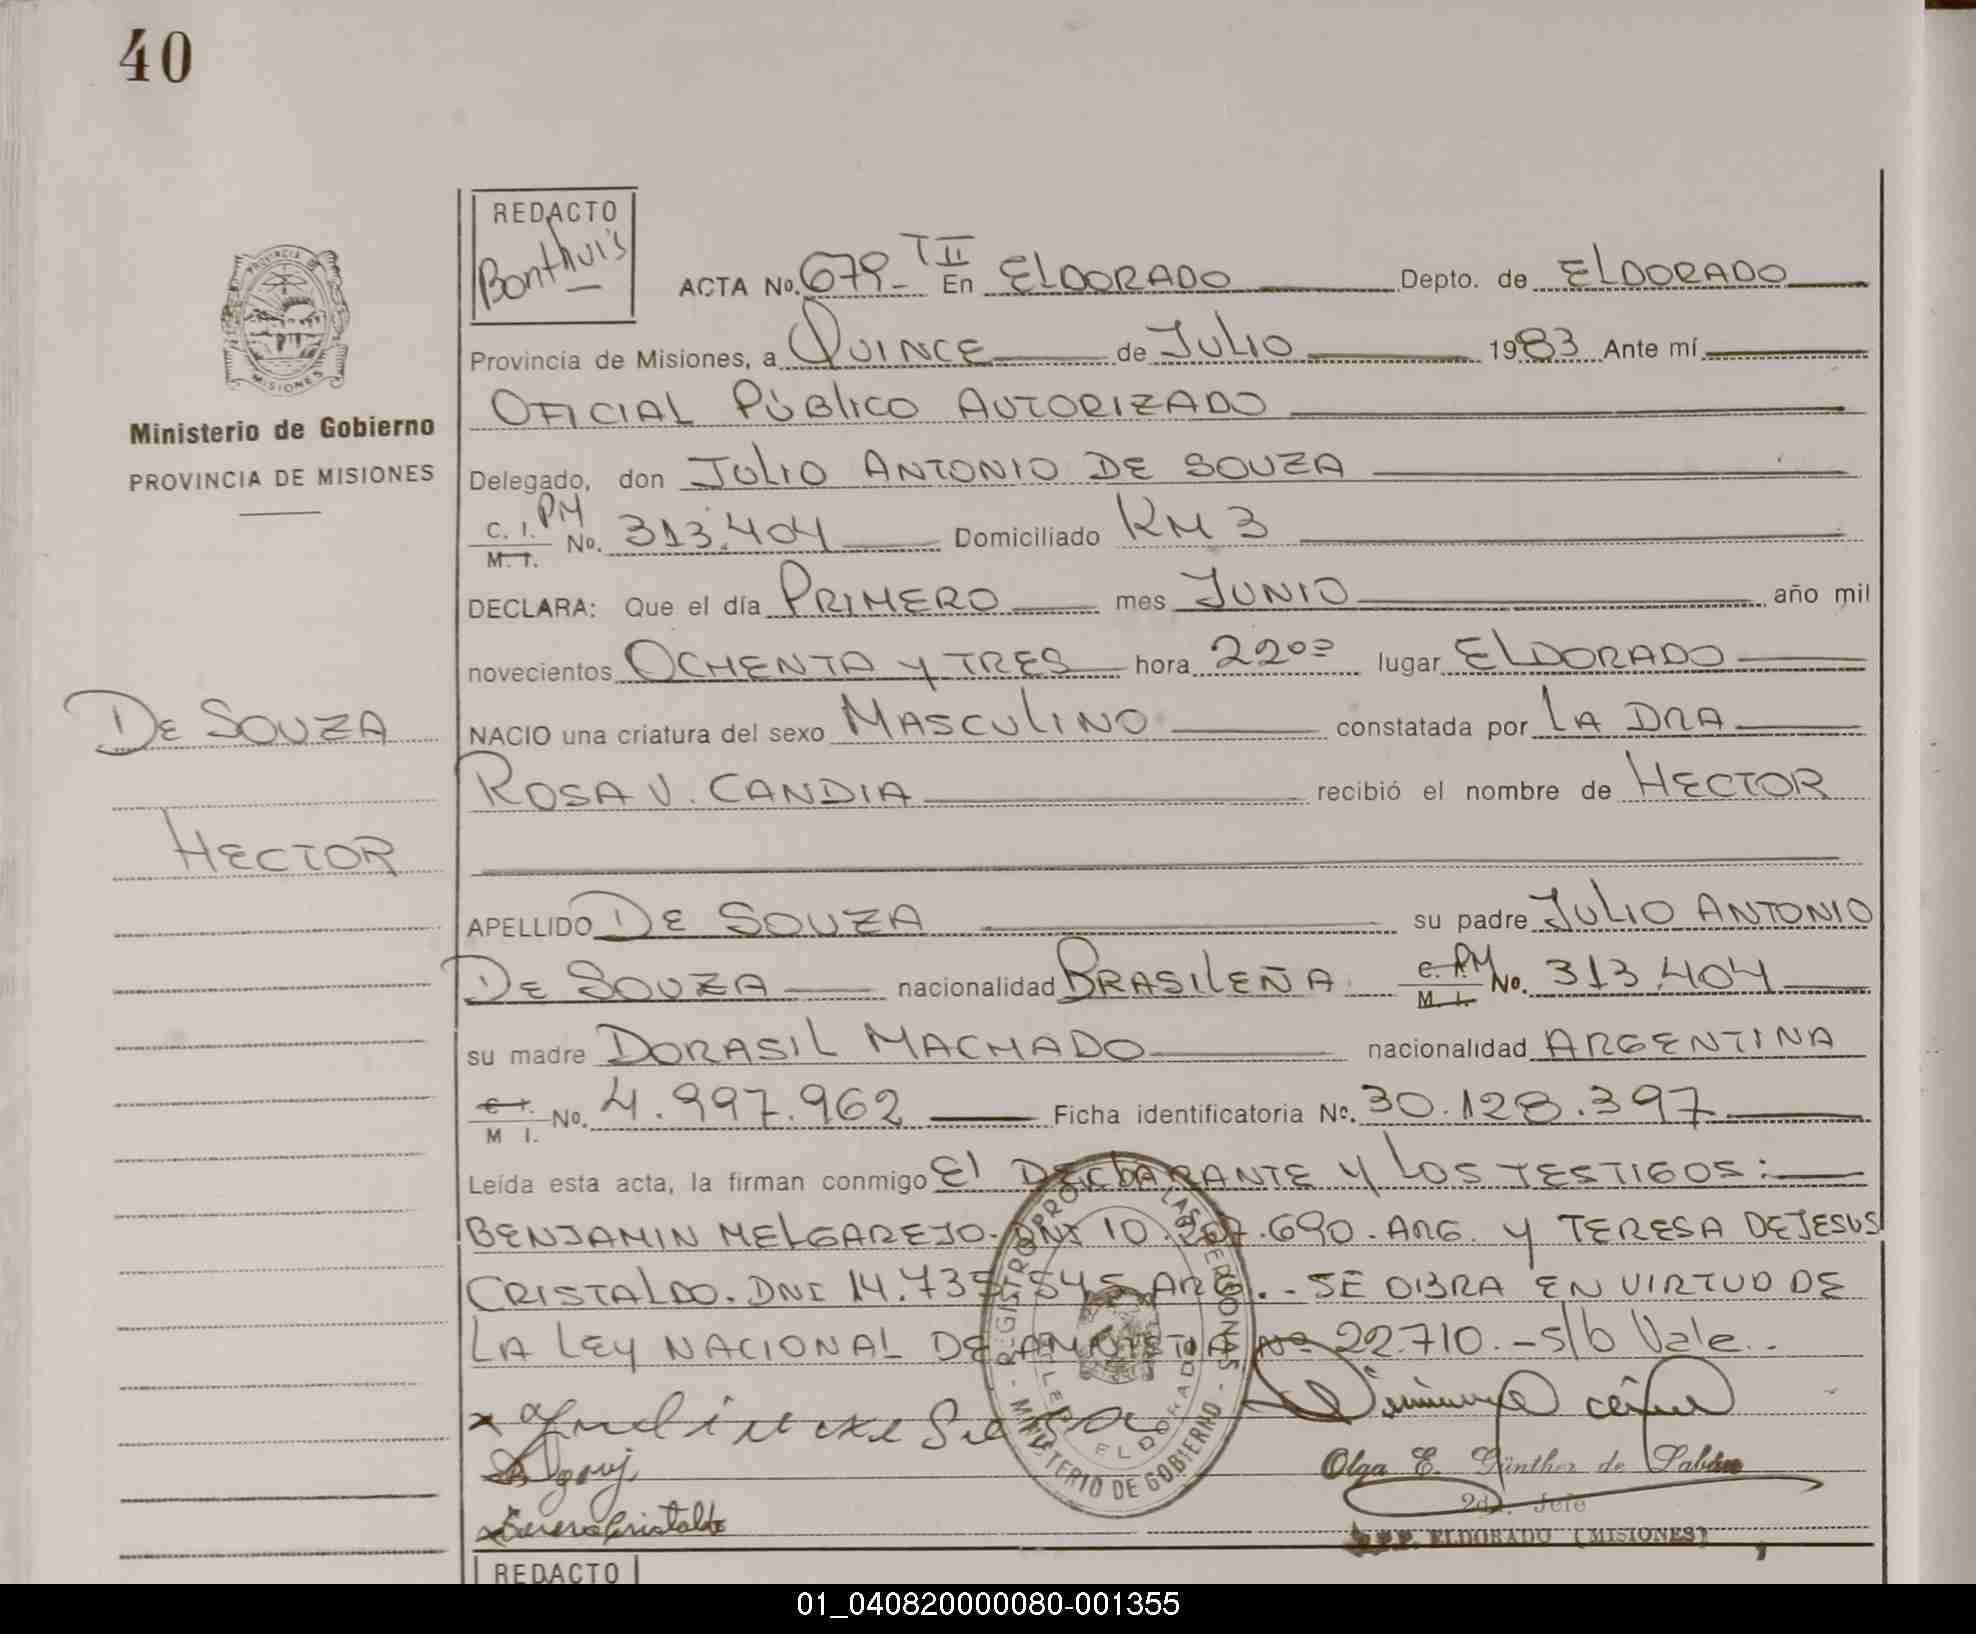 40
REDACTO
Bonthuis
ACTA No. 679- T II En ELDORADO Depto. de ELDORADO
Provincia de Misiones, a QUINCE de JULIO 1983 Ante mí
OFICIAL PÚBLICO AUTORIZADO
Delegado, don JULIO ANTONIO DE SOUZA
C. I. PM
M. I. No. 313.404 Domiciliado KM 3
DECLARA: Que el día PRIMERO mes JUNIO año mil
novecientos OCHENTA Y TRES hora 22 00 lugar ELDORADO
NACIO una criatura del sexo MASCULINO constatada por LA DRA
ROSA V. CANDIA recibió el nombre de HECTOR
APELLIDO DE SOUZA su padre JULIO ANTONIO
DE SOUZA nacionalidad BRASILEÑA C. PM
M. I. No. 313.404
su madre DORASIL MACHADO nacionalidad ARGENTINA
C. I.
M I. No. 4.997.962 Ficha identificatoria No. 30.128.397
Leída esta acta, la firman conmigo El DECLARANTE Y LOS TESTIGOS:
BENJAMIN MELGAREJO. DNI 10. .690. ARG. Y TERESA DE JESUS
CRISTALDO. DNI 14.735.545 ARG. - SE OBRA EN VIRTUD DE
LA LEY NACIONAL DE AMNISTIA No 22.710. - S/b Vale.
Olga E. Günther de
2da. Jefe
ELDORADO (MISIONES)
REGISTRO PROV. LAS PERSONAS
MINISTERIO DE GOBIERNO
ELDORADO
PROVINCIA DE
MISIONES
Ministerio de Gobierno
PROVINCIA DE MISIONES
DE SOUZA
HECTOR
REDACTO
01_040820000080-001355